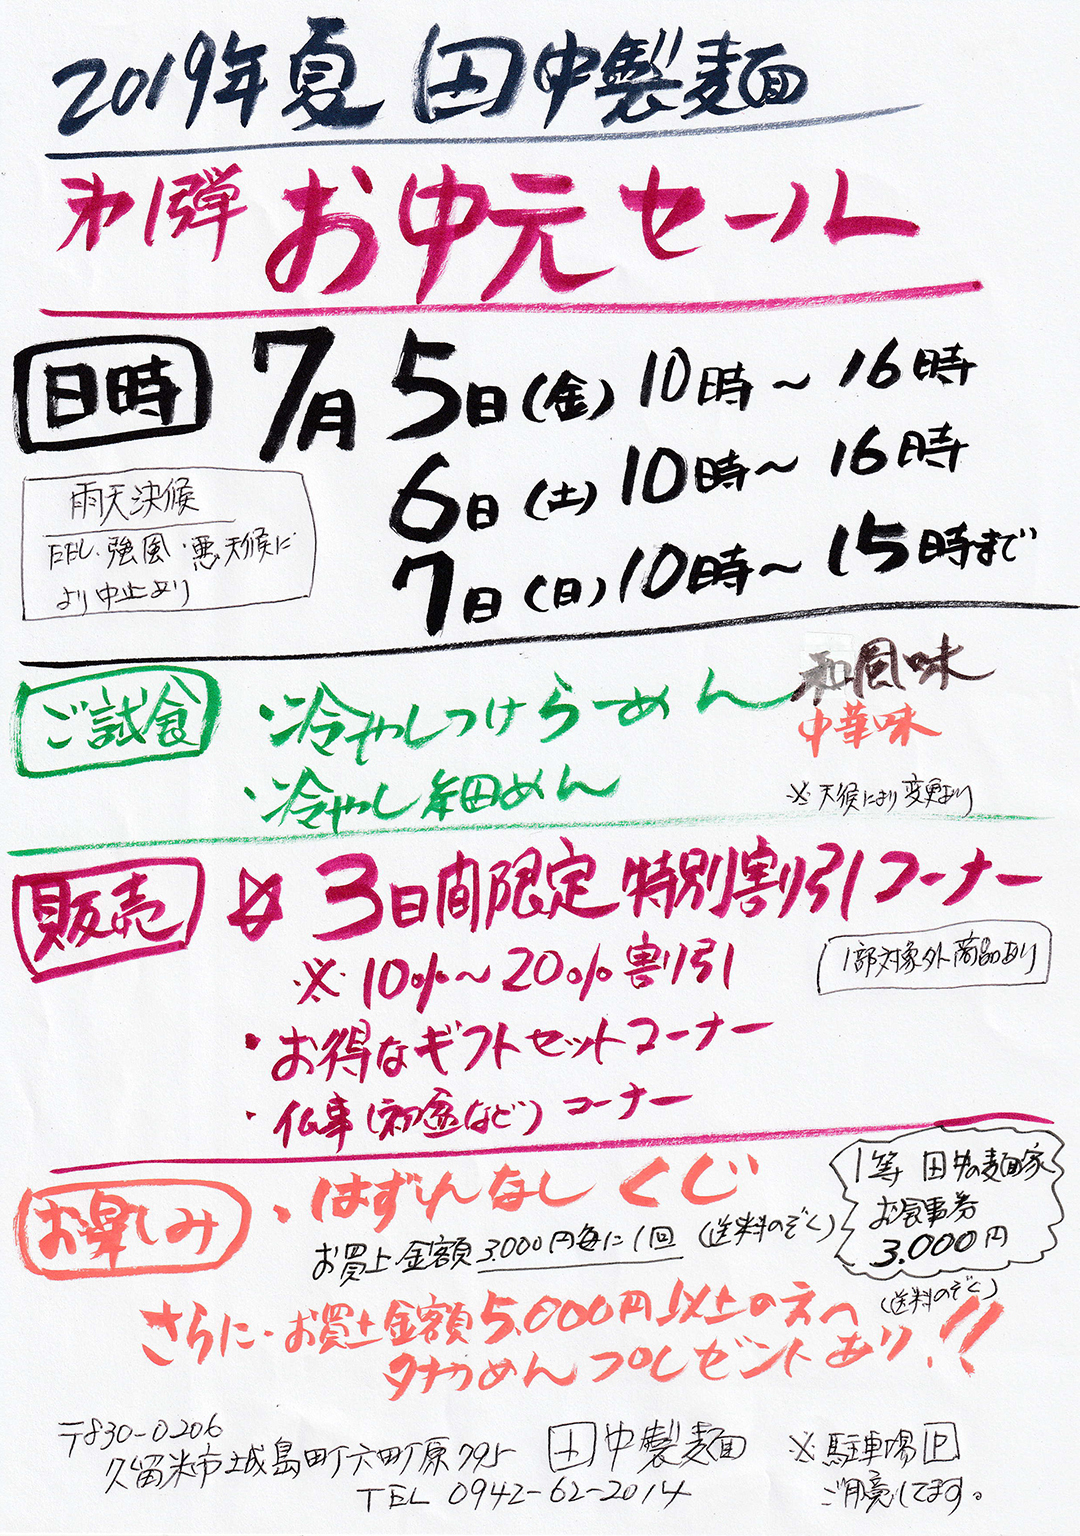 2019年夏 田中製麺
第1弾 お中元セール
日時 7月 5日(金) 10時～16時
6日(土) 10時～16時
7日(日) 10時～15時まで
雨天決候
但し、強風・悪天候に
より中止あり
ご試食 ・冷やしつけらーめん 和風味
中華味
・冷やし細めん
※天候により変更あり
販売 ☆3日間限定 特別割引コーナー
※10%～20%割引
1部対象外商品あり
・お得なギフトセットコーナー
・仏事(初盆など)コーナー
お楽しみ ・はずれなしくじ
お買上金額3,000円毎に1回 (送料のぞく)
1等 田中の麺家
お食事券
3,000円
(送料のぞく)
さらに・お買上金額5,000円以上の方へ
タナカめんプレゼントあり!!
〒830-0206
久留米市城島町六町原795 田中製麺
TEL 0942-62-2014
※駐車場P
ご用意してます。